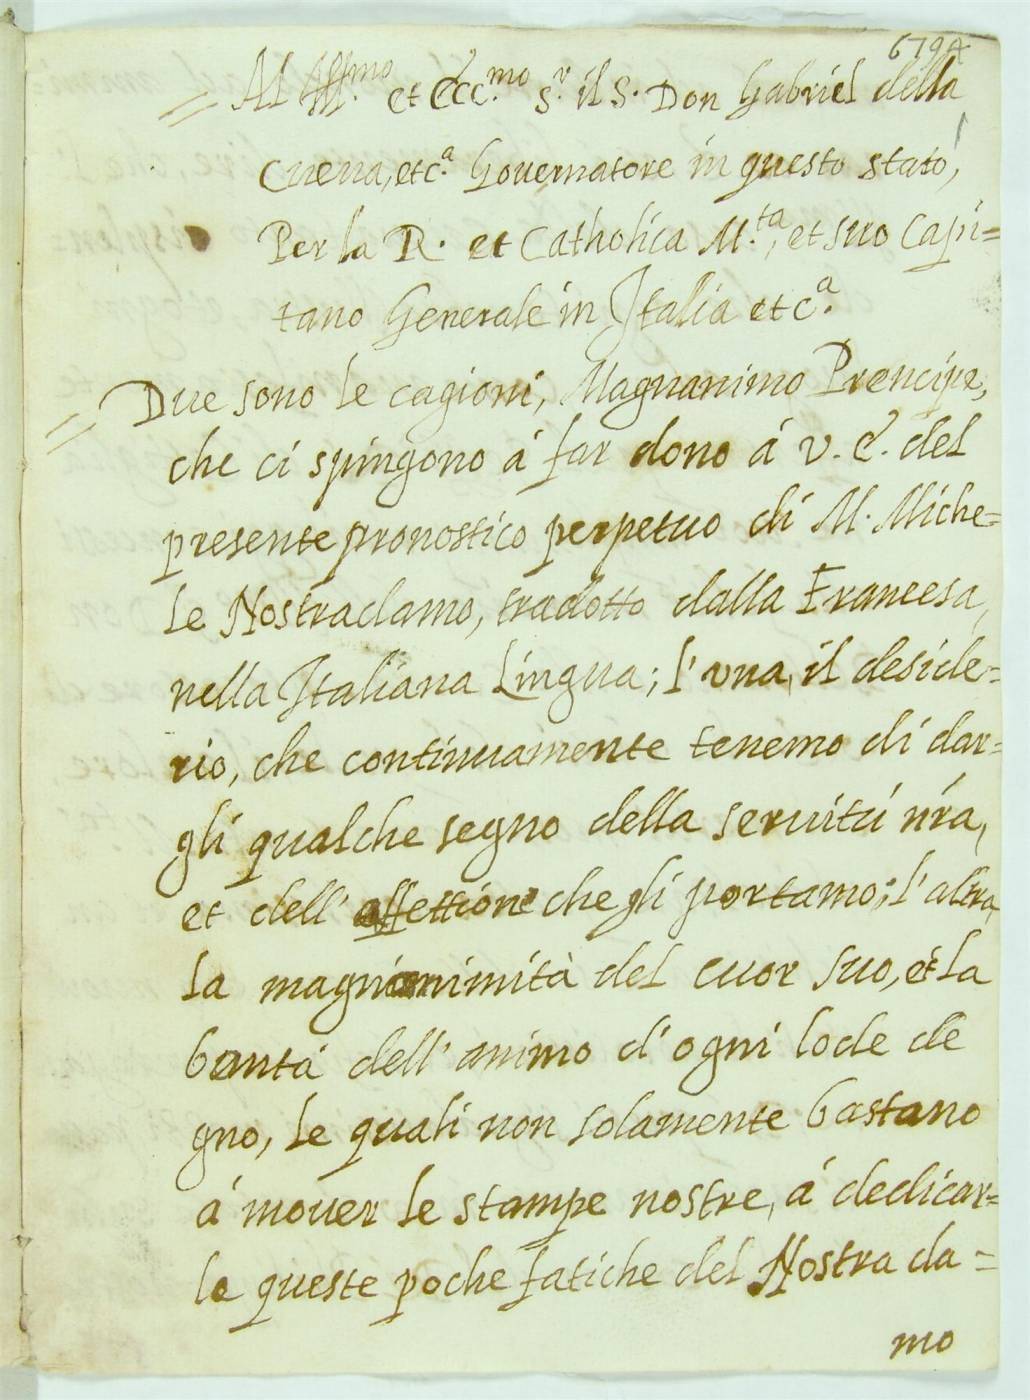 6794
Al Ill.mo et Ecc.mo S.r il S. Don Gabriel della
Cueua, etc.a Gouernatore in questo stato,
Per la R. et Catholica M.ta, et suo Capi=
tano Generale in Italia etc.a
Due sono le cagioni, Magnanimo Prencipe,
che ci spingono á far dono á v. E. del
presente pronostico perpetuo di M. Miche=
le Nostradamo, tradotto dalla Francesa,
nella Italiana Lingua; l'vna, il deside=
rio, che continuamente tenemo di dar=
gli qualche segno della seruitú n̄ra,
et dell' affettione che gli portamo; l'altra
la magnanimità del cuor suo, et la
bontá dell' animo d'ogni lode de
gno, le quali non solamente bastano
á mouer le stampe nostre, á dedicar=
le queste poche fatiche del Nostrada=
mo